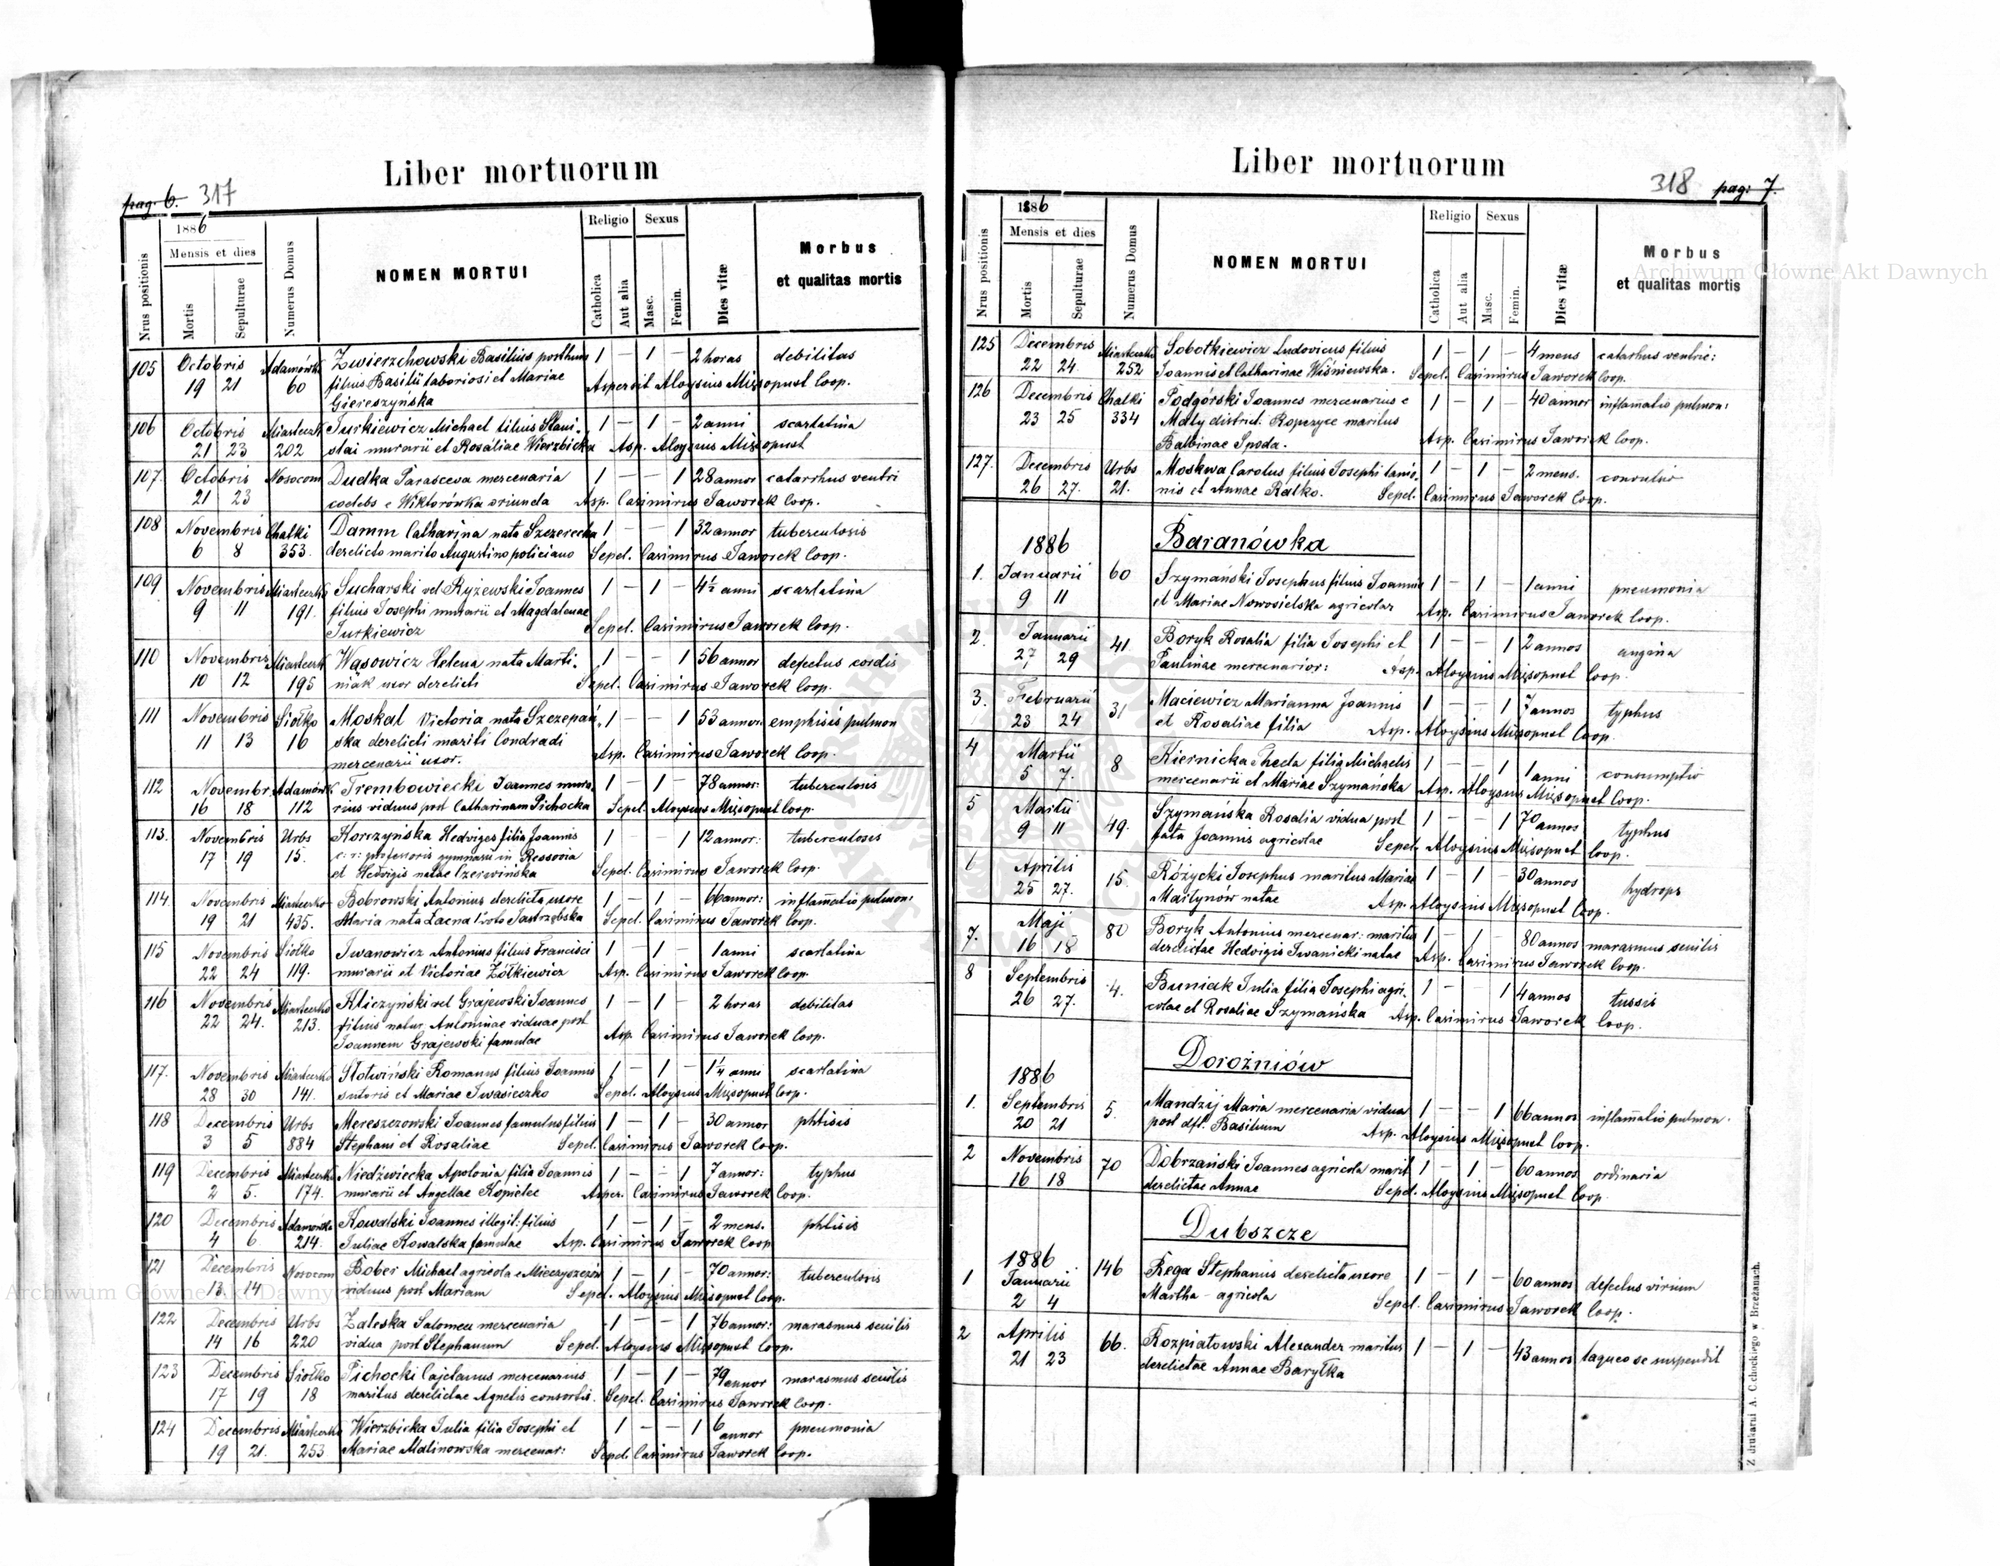 Liber mortuorum
pag. 6. 317
1886
Nrus positionis
Mensis et dies
Mortis
Sepulturae
Numerus Domus
NOMEN MORTUI
Religio
Catholica
Aut alia
Sexus
Masc.
Femin.
Dies vitæ
Morbus
et qualitas mortis
105 Octobris Adamówka Zwierzchowski Basilius posthum 1 — 1 — 2 horas debilitas
19 21 60 filius Basilii laboriosi et Mariae Aspersit Aloysius Mizsopust Coop.
Giereszyńska
106 Octobris Miasteczk Jurkiewicz Michael filius Stani- 1 — 1 — 2 anni scarlatina
21 23 202 slai murarii et Rosaliae Wierzbicka Asp. Aloysius Mizsopust
107. Octobris Nosocom Dudka Parasceva mercenaria 1 — — 1 28 annor catarrhus ventri
21 23 coelebs e Wiktorówka oriunda Asp. Casimirus Jaworek Coop.
108 Novembris Chatki Damm Catharina nata Szczerecka 1 — — 1 32 annor tuberculosis
6 8 353. derelicto marito Augustino policiano Sepel. Casimirus Jaworek Coop.
109 Novembris Miasteczk Sucharski vel Ryżewski Joannes 1 — 1 — 4½ anni scarlatina
9 11 191. filius Josephi murarii et Magdalenae Sepel. Casimirus Jaworek Coop.
Jurkiewicz
110 Novembris Miasteczk Wąsowicz Helena nata Marti- 1 — — 1 56 annor defectus cordis
10 12 195 niak uxor derelicti Sepel. Casimirus Jaworek Coop.
111 Novembris Siołko Moskal Victoria nata Szczepań- 1 — — 1 53 annor emphisis pulmon
11 13 16 ska derelicti mariti Condradi Asp. Casimirus Jaworek Coop.
mercenarii uxor.
112 Novembr. Adamówk Trembowiecki Joannes mura- 1 — 1 — 78 annor: tuberculosis
16 18 112 rius viduus post Catharinam Pichocka Sepel Aloysius Mizsopust Coop.
113. Novembris Urbs Korczyńska Hedviges filia Joannis 1 — — 1 12 annor: tuberculoses
17 19 15. c: r: professoris gymnasii in Ressovia
et Hedvigis natae Czerwińska Sepel. Casimirus Jaworek Coop.
114. Novembris Miasteczko Bobrowski Antonius derelicta uxore 1 — 1 — 66 annor: inflam̄atio pulmon:
19 21 435. Maria nata Lacna 1º voto Jastrzębska Sepel. Casimirus Jaworek Coop.
115 Novembris Siołko Iwanowicz Antonius filius Francisci 1 — 1 — 1 anni scarlatina
22 24 119. murarii et Victoriae Żółkiewicz Asp. Casimirus Jaworek Coop.
116 Novembris Miasteczko Kliczyński vel Grajewski Joannes 1 — 1 — 2 horas debilitas
22 24. 213. filius natur. Antoninae viduae post Asp. Casimirus Jaworek Coop.
Joannem Grajewski famulae
117. Novembris Miasteczko Słotwiński Romanus filius Joannis 1 — 1 — 1¼ anni scarlatina
28 30 141. sutoris et Mariae Iwasieczko Sepel. Aloysius Mizsopust Coop.
118 Decembris Urbs Mereszezowski Joannes famulus filius 1 — 1 — 30 annor phtisis
3 5 884 Stephani et Rosaliae Sepel. Casimirus Jaworek Coop.
119 Decembris Miasteczko Niedźwiecka Apolonia filia Joannis 1 — — 1 7 annor: typhus
2 5. 174. murarii et Angellae Kopielec Asper. Casimirus Jaworek Coop.
120 Decembris Adamówka Kowalski Joannes illegit: filius 1 — 1 — 2 mens. phtisis
4 6 214. Juliae Kowalska famulae Asp. Casimirus Jaworek Coop
121 Decembris Nosocom Bober Michael agricola e Mieczyszczów 1 — 1 — 70 annor: tuberculosis
13 14 viduus post Mariam Sepel. Aloysius Mizsopust Coop.
122 Decembris Urbs Zaleska Salomea mercenaria 1 — — 1 76 annor: marasmus senilis
14 16 220 vidua post Stephanum Sepel. Aloysius Mizsopust Coop.
123 Decembris Siołko Pichocki Cajetanus mercenarius 1 — 1 — 79 annor marasmus senilis
17 19 18 maritus derelictae Agnetis consortis. Sepel. Casimirus Jaworek Coop.
124 Decembris Miasteczk Wierzbicka Julia filia Josephi et 1 — — 1 6 annor pneumonia
19 21. 253 Mariae Malinowska mercenar: Sepel. Casimirus Jaworek Coop.
Liber mortuorum
318 pag: 7.
1886
Nrus positionis
Mensis et dies
Mortis
Sepulturae
Numerus Domus
NOMEN MORTUI
Religio
Catholica
Aut alia
Sexus
Masc.
Femin.
Dies vitæ
Morbus
et qualitas mortis
125 Decembris Miasteczko Sobotkiewicz Ludovicus filius 1 — 1 — 4 mens catarhus ventric:
22 24. 252 Joannis et Catharinae Wiśniewska. Sepel. Casimirus Jaworek Coop.
126 Decembris Chatki Podgórski Joannes mercenarius e 1 — 1 — 40 annor inflam̄atio pulmon:
23 25 334 Mały district. Ropczyce maritus Asp. Casimirus Jaworek Coop.
Balbinae Spoda.
127. Decembris Urbs Moskwa Carolus filius Josephi lanio- 1 — 1 — 2 mens. convulsio
26 27. 21. nis et Annae Ratko. Sepel. Casimirus Jaworek Coop.
1886 Baranówka
1. Januarii 60 Szymański Josephus filius Joannis 1 — 1 — 1 anni pneumonia
9 11 et Mariae Nowosielska agricolar Asp. Casimirus Jaworek Coop.
2. Januarii 41. Boryk Rosalia filia Josephi et 1 — — 1 2 annos angina
27 29 Paulinae mercenarior: Asp. Aloysius Mizsopust Coop.
3. Februarii 31 Maciewicz Marianna Joannis 1 — — 1 7 annos typhus
23 24 et Rosaliae filia Asp. Aloysius Mizsopust Coop.
4 Martii 8 Kiernicka Theda filia Michaelis 1 — — 1 1 anni consumptio
5 7. mercenarii et Mariae Szymańska Asp. Aloysius Mizsopust Coop.
5 Martii 49. Szymańska Rosalia vidua post 1 — — 1 70 annos typhus
9 11 fata Joannis agricolae Sepel. Aloysius Mizsopust Coop.
6 Aprilis 15. Różycki Josephus maritus Mariae 1 — 1 — 30 annos hydrops
25 27. Martynów natae Asp. Aloysius Mizsopust Coop.
7. Maji 80 Boryk Antonius mercenar: maritus 1 — 1 — 80 annos marasmus senilis
16 18 derelictae Hedvigis Iwanicki natae Asp. Casimirus Jaworek Coop.
8 Septembris 4. Buniak Julia filia Josephi agri- 1 — — 1 4 annos tussis
26 27. colae et Rosaliae Szymańska Asp. Casimirus Jaworek Coop.
Dorożniów
1886
1. Septembris 5. Mandzij Maria mercenaria vidua 1 — — 1 66 annos inflam̄atio pulmon.
20 21 post dft. Basilium Asp. Aloysius Mizsopust Coop.
2 Novembris 70 Dobrzański Joannes agricola marit 1 — 1 — 60 annos ordinaria
16 18 derelictae Annae Sepel. Aloysius Mizsopust Coop.
Dubszcze
1886
1 Januarii 146 Rega Stephanus derelicta uxore 1 — 1 — 60 annos defectus virium
2 4 Martha – agricola Sepel. Casimirus Jaworek Coop.
2 Aprilis 66. Rozpiatowski Alexander maritus 1 — 1 — 43 annos laqueo se suspendit
21 23 derelictae Annae Baryłka
Z drukarni A. Cchockiego w Brzeżanach.
Archiwum Główne Akt Dawnych
Archiwum Główne Akt Dawnych